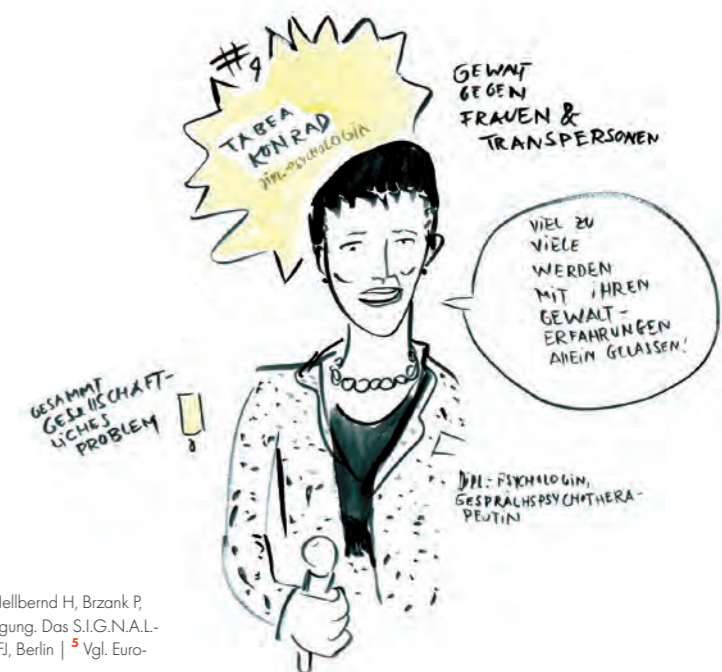 #9
TABEA
KONRAD
DIPL.-PSYCHOLOGIN
GEWALT
GEGEN
FRAUEN &
TRANSPERSONEN
VIEL ZU
VIELE
WERDEN
MIT IHREN
GEWALT-
ERFAHRUNGEN
ALLEIN GELASSEN!
GESAMMT
GESELLSCHAFT-
LICHES
PROBLEM
DIPL.-PSYCHOLOGIN,
GESPRÄCHSPSYCHOTHERA-
PEUTIN
Hellbernd H, Brzank P,
gung. Das S.I.G.N.A.L.-
FJ, Berlin | 5 Vgl. Euro-